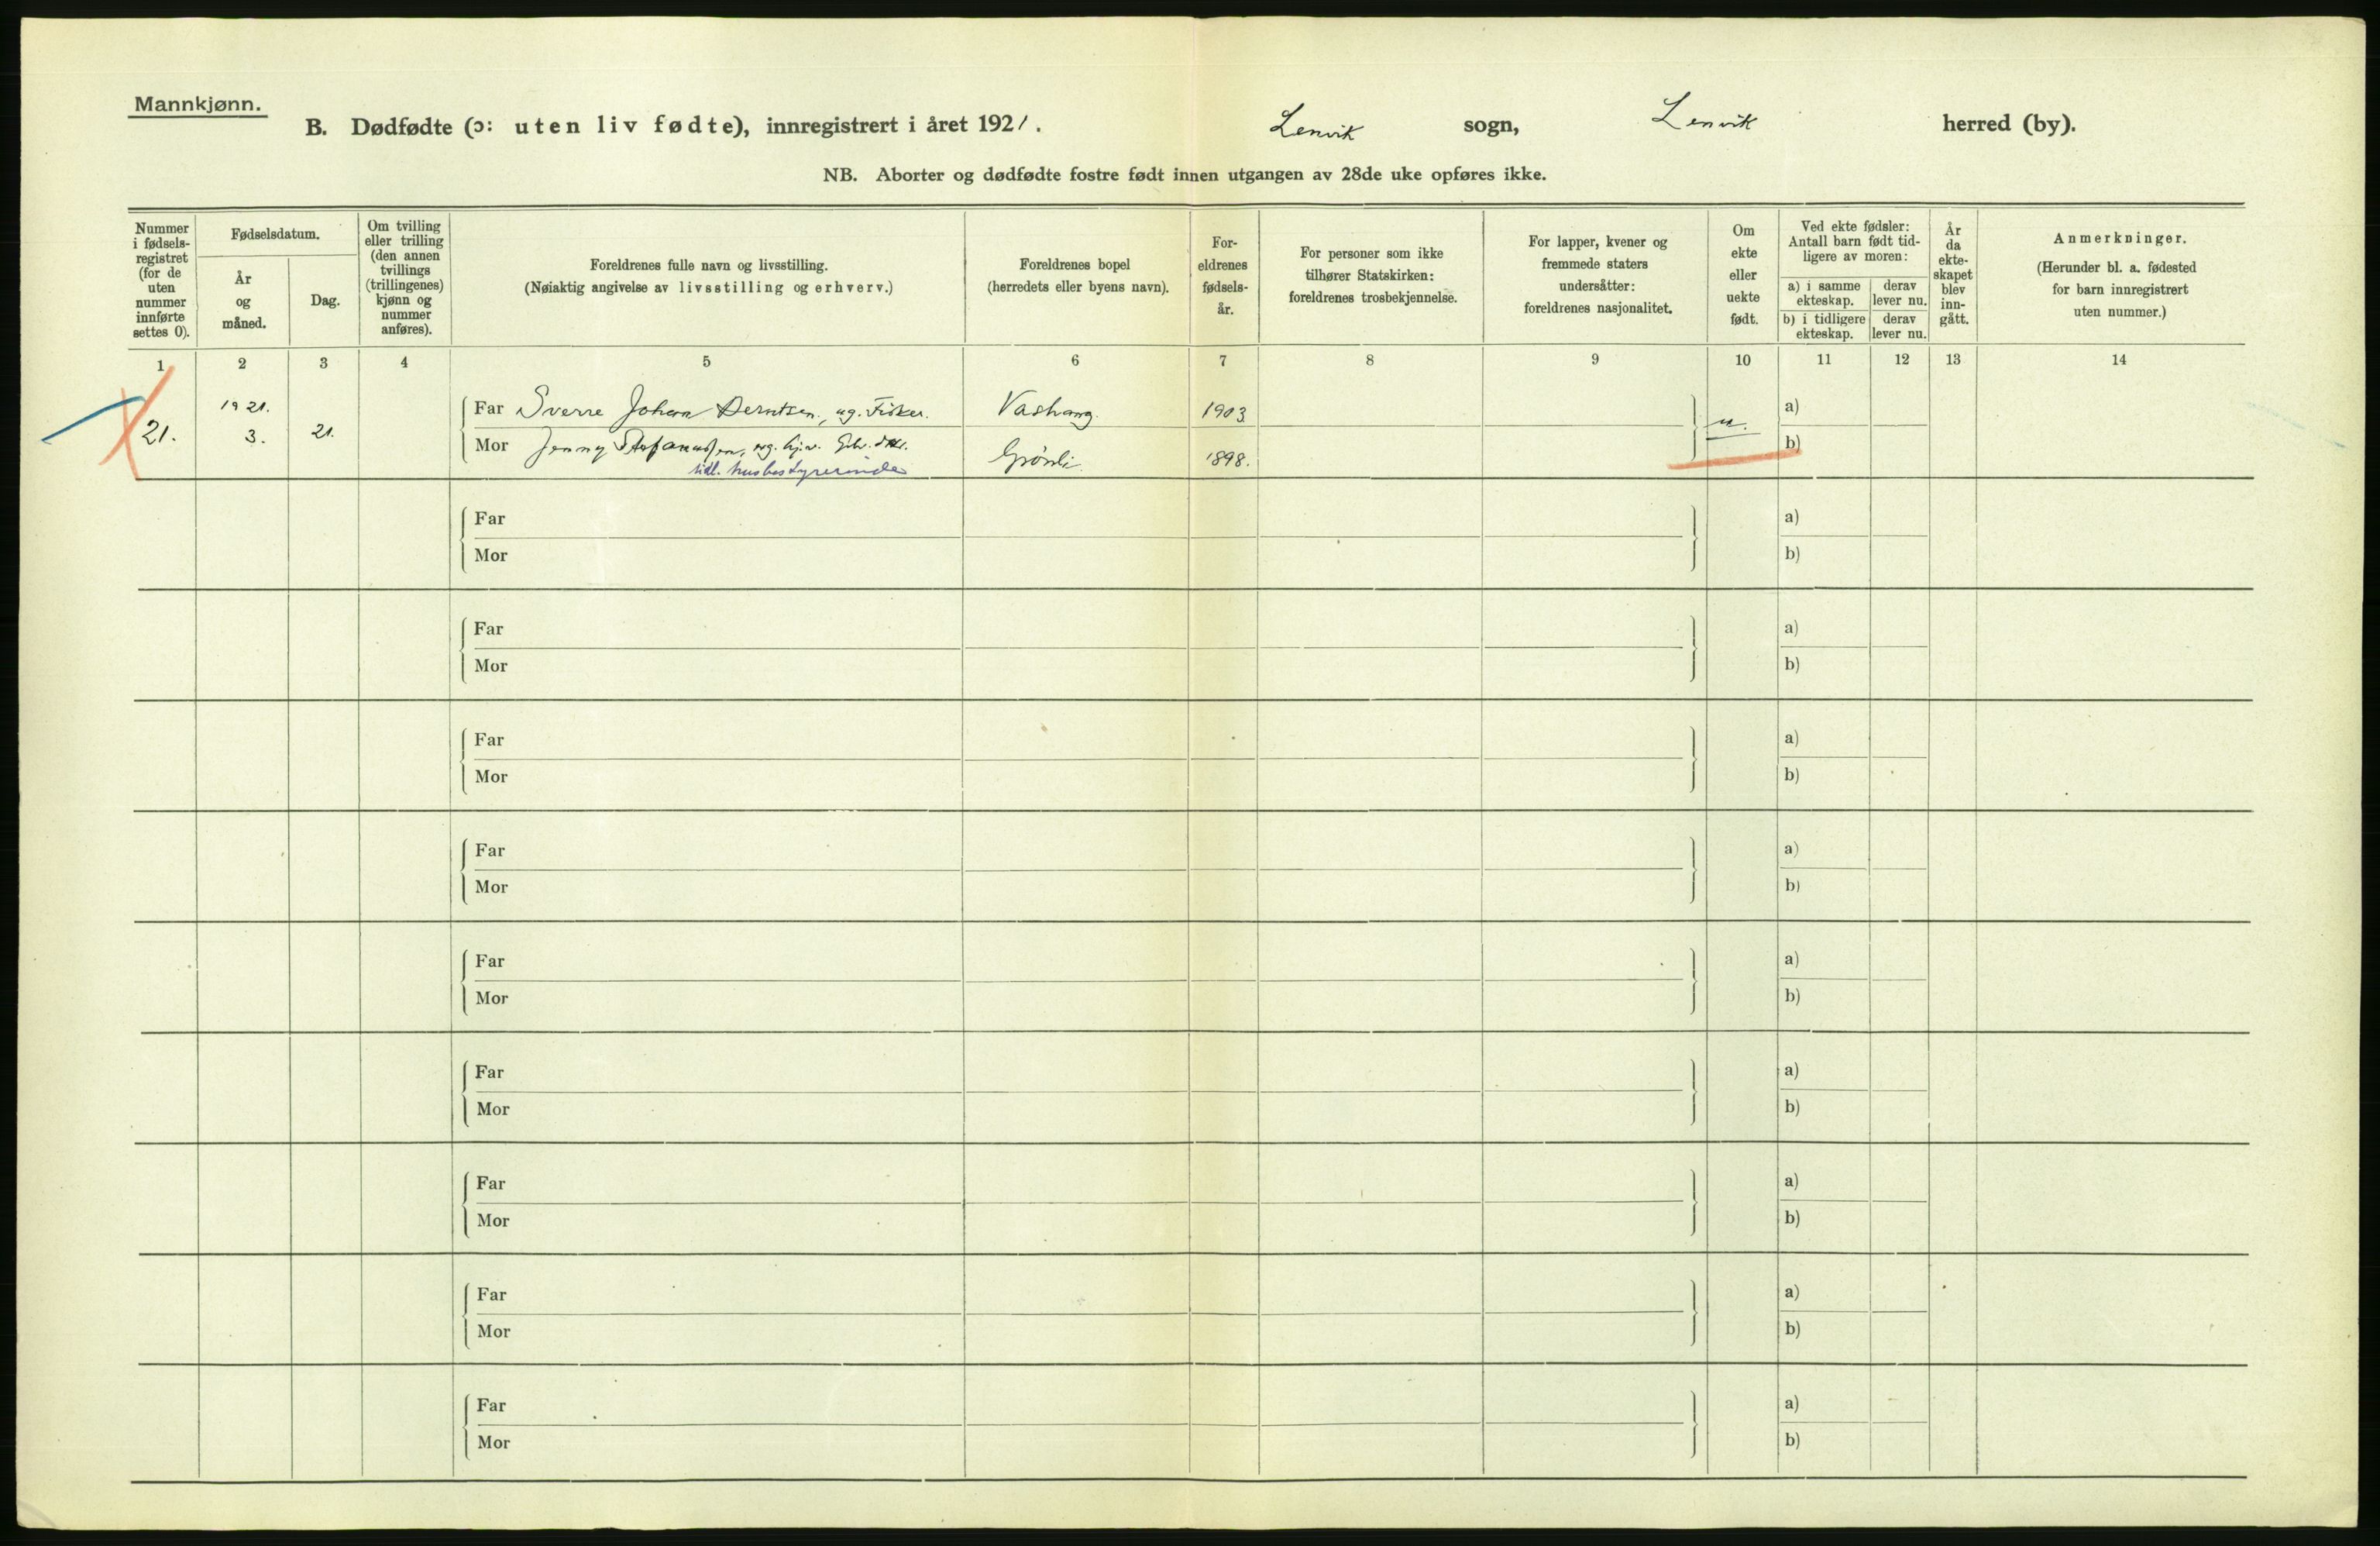 Mannkjønn.
B. Dødfødte (ɔ: uten liv fødte), innregistrert i året 1921. Lenvik sogn, Lenvik herred (by).
NB. Aborter og dødfødte fostre født innen utgangen av 28de uke opføres ikke.
Nummer i fødsels-registret (for de uten nummer innførte settes 0).
Fødselsdatum.
År og måned.
Dag.
Om tvilling eller trilling (den annen tvillings (trillingenes) kjønn og nummer anføres).
Foreldrenes fulle navn og livsstilling.
(Nøiaktig angivelse av livsstilling og erhverv.)
Foreldrenes bopel
(herredets eller byens navn).
For-eldrenes fødsels-år.
For personer som ikke tilhører Statskirken: foreldrenes trosbekjennelse.
For lapper, kvener og fremmede staters undersåtter: foreldrenes nasjonalitet.
Om ekte eller uekte født.
Ved ekte fødsler: Antall barn født tid-ligere av moren:
a) i samme ekteskap.
derav lever nu.
b) i tidligere ekteskap.
derav lever nu.
År da ekte-skapet blev inn-gått.
Anmerkninger.
(Herunder bl. a. fødested for barn innregistrert uten nummer.)
1 2 3 4 5 6 7 8 9 10 11 12 13 14
21. 1921. 3. 21.
Far Sverre Johan Berntsen, ug. Fisker. Vashaug. 1903 u. a)
Mor Jenny Stefanussen, ug. hj.v. Grønli 1898. b)
tidl. husbestyrerinde
Far a)
Mor b)
Far a)
Mor b)
Far a)
Mor b)
Far a)
Mor b)
Far a)
Mor b)
Far a)
Mor b)
Far a)
Mor b)
Far a)
Mor b)
Far a)
Mor b)